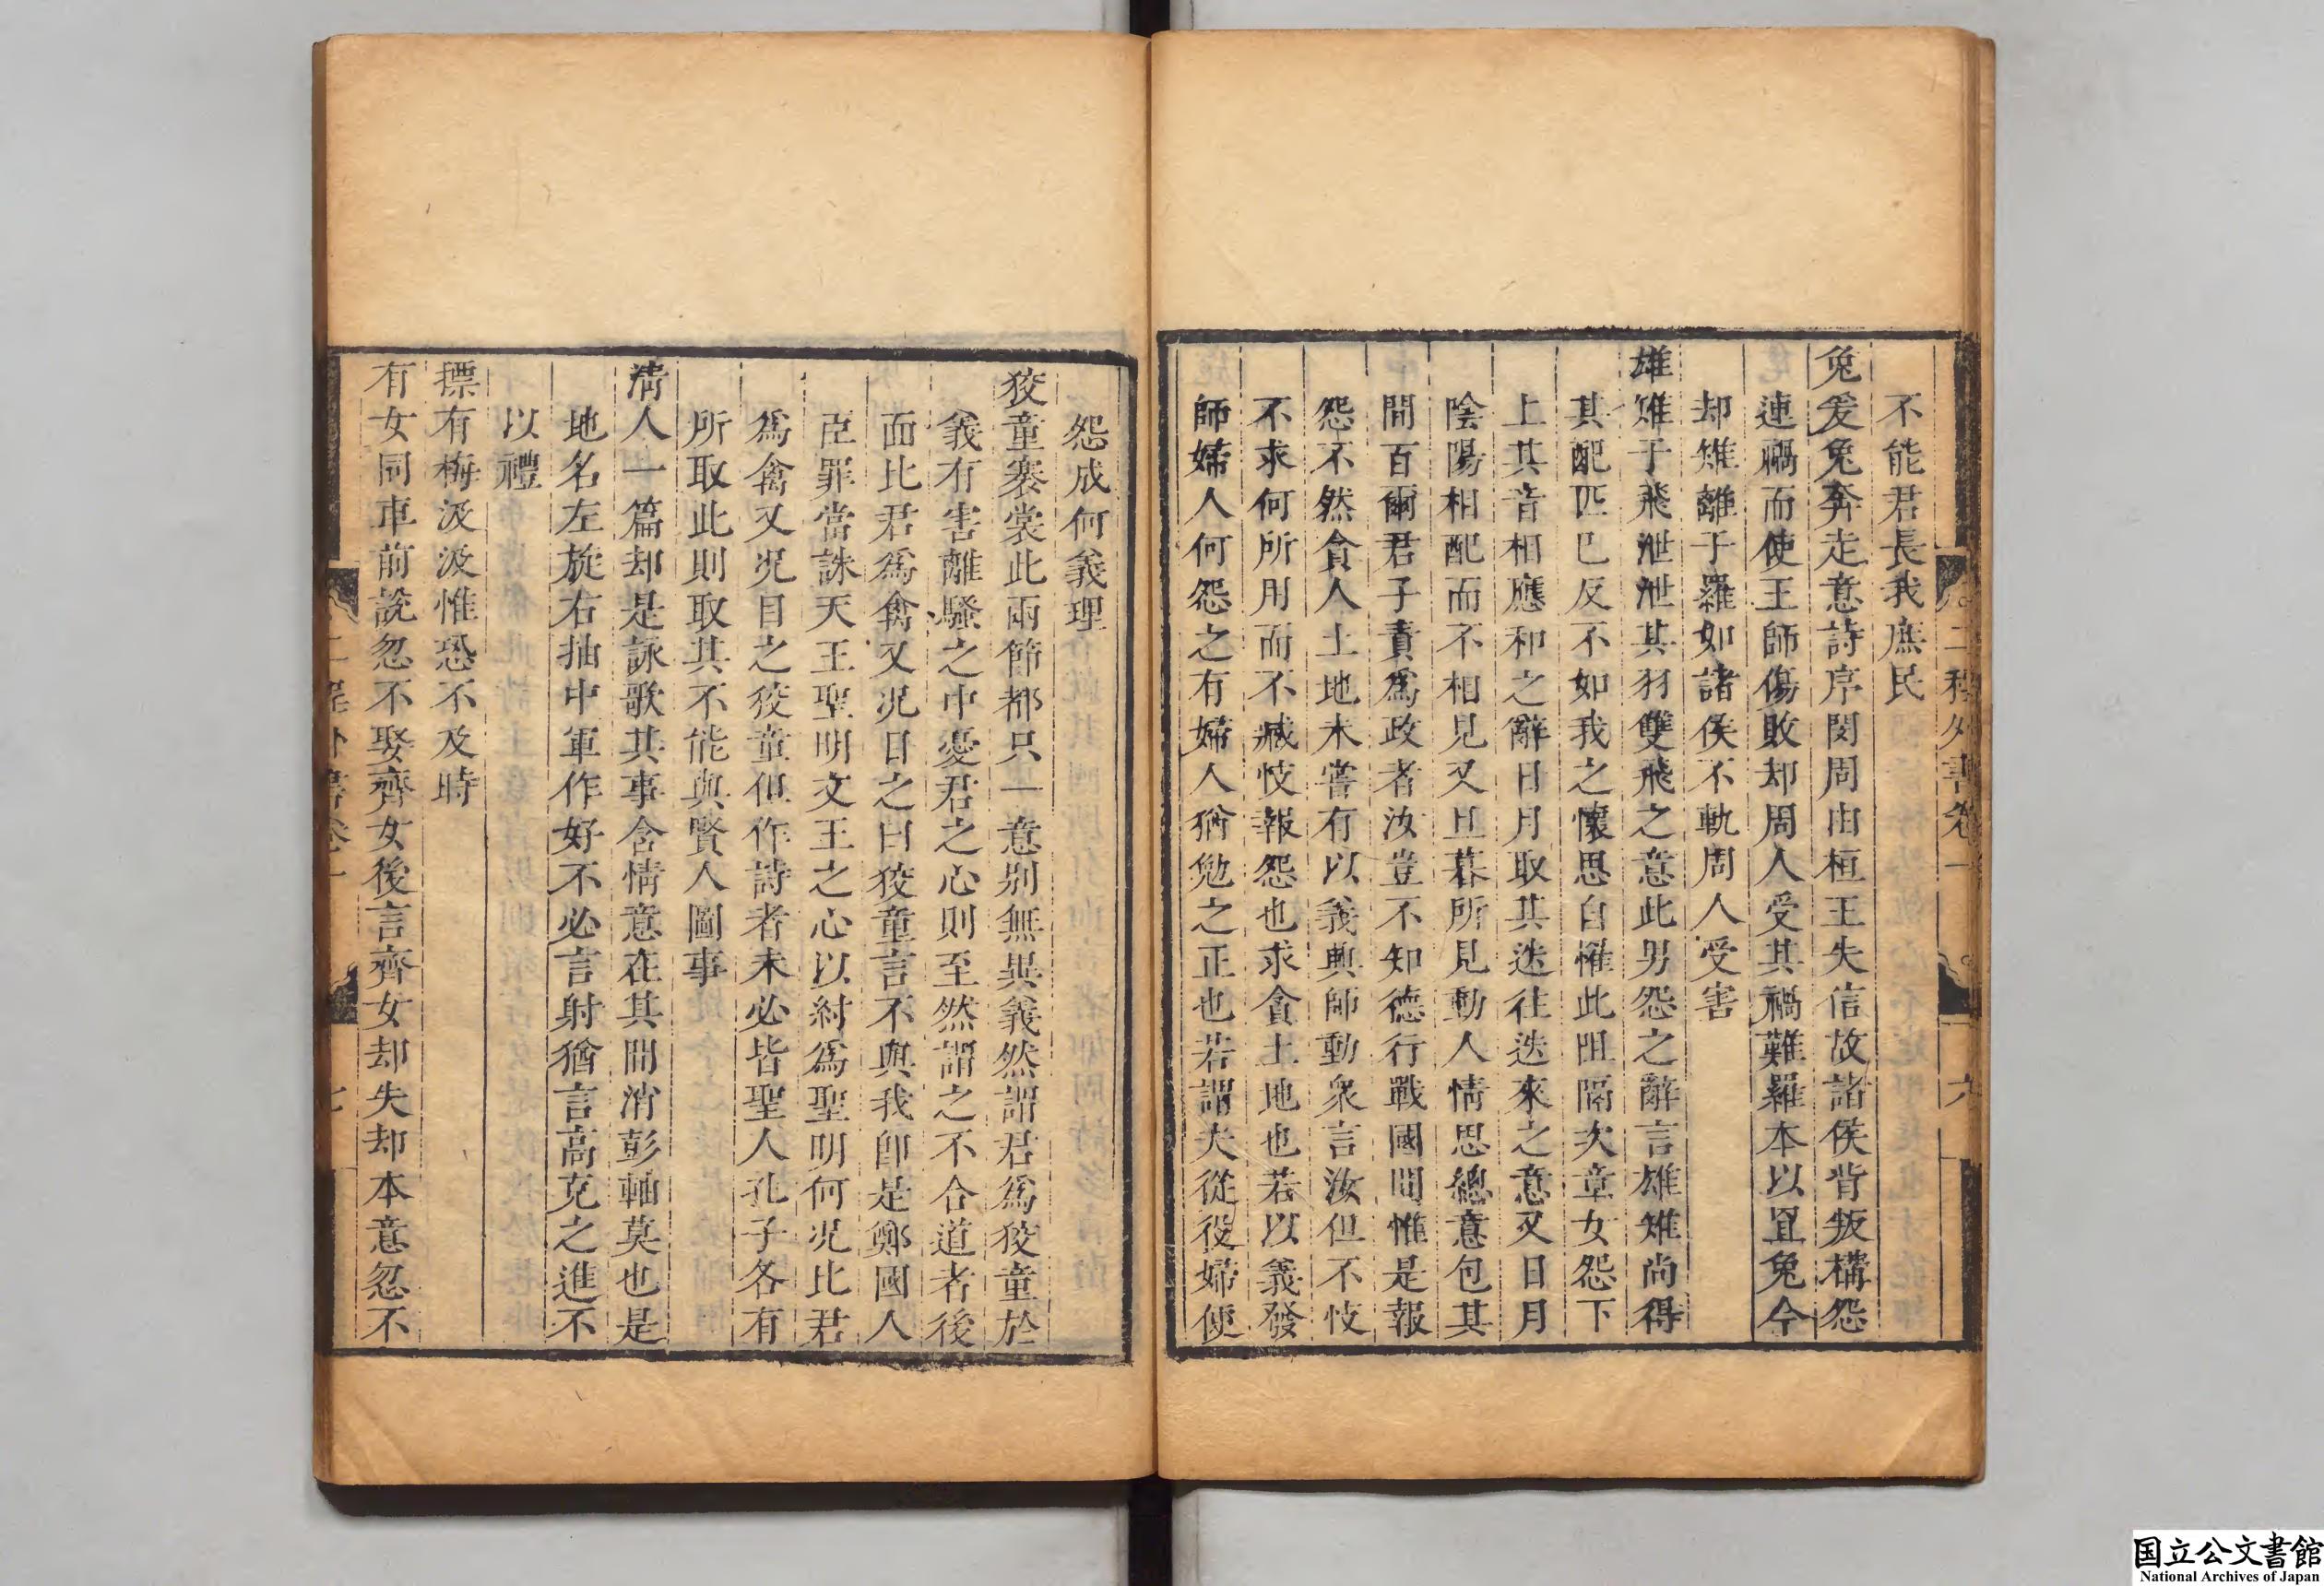 二程外書卷一
六
不能君長我庶民
兔爰兔奔走意詩序閔周由桓王失信故諸侯背叛構怨
連禍而使王師傷敗却周人受其禍難羅本以罝兔今
却雉離于羅如諸侯不軌周人受害
雄雉于飛泄泄其羽雙飛之意此男怨之辭言雄雉尚得
其配匹已反不如我之懷思自懼此阻隔次章女怨下
上其音相應和之辭日月取其迭往迭來之意又日月
陰陽相配而不相見又旦暮所見動人情思總意包其
間百爾君子責爲政者汝豈不知德行戰國間惟是報
怨不然貪人土地未嘗有以義興師動衆言汝但不忮
不求何所用而不臧忮報怨也求貪土地也若以義發
師婦人何怨之有婦人猶勉之正也若謂夫從役婦便
怨成何義理
狡童褰裳此兩節都只一意别無異義然謂君爲狡童於
義有害離騷之中憂君之心則至然謂之不合道者後
面比君爲禽又况日之曰狡童言不與我卽是鄭國人
臣罪當誅天王聖明文王之心以紂爲聖明何况比君
爲禽又况目之狡童但作詩者未必皆聖人孔子各有
所取此則取其不能與賢人圖事
淸人一篇却是詠歌其事含情意在其間消彭軸莫也是
地名左旋右抽中軍作好不必言射猶言高克之進不
以禮
摽有梅汲汲惟恐不及時
有女同車前說忽不娶齊女後言齊女却失却本意忽不
二程外書卷一
七
国立公文書館
National Archives of Japan